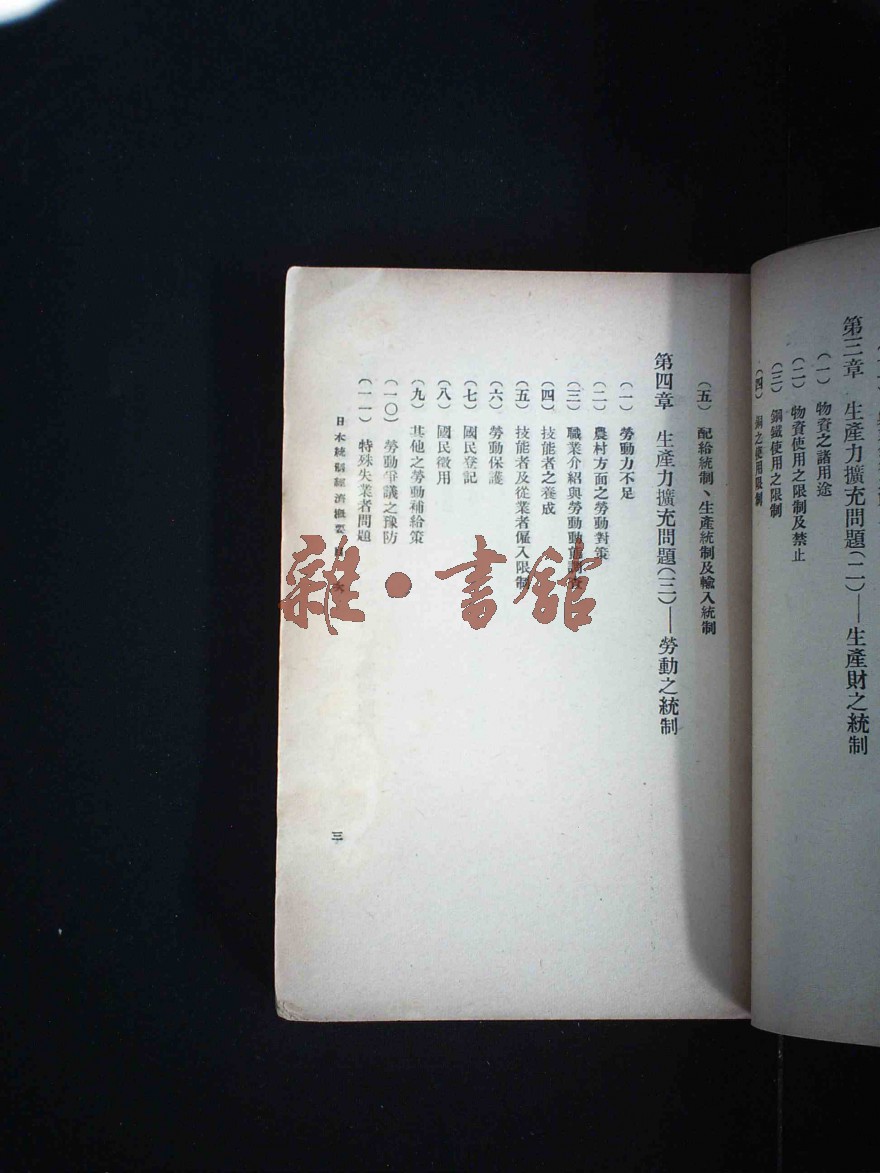 第三章　生產力擴充問題(二)——生產財之統制
(一)　物資之諸用途
(二)　物資使用之限制及禁止
(三)　鋼鐵使用之限制
(四)　銅之使用限制
(五)　配給統制、生產統制及輸入統制
第四章　生產力擴充問題(三)——勞動之統制
(一)　勞動力不足
(二)　農村方面之勞動對策
(三)　職業介紹與勞動動態調查
(四)　技能者之養成
(五)　技能者及從業者僱入限制
(六)　勞動保護
(七)　國民登記
(八)　國民徵用
(九)　其他之勞動補給策
(一〇)　勞動爭議之豫防
(一一)　特殊失業者問題
日本統制經濟概要　目次
三
雜·書館